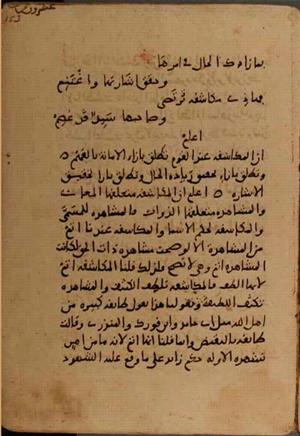 بما زاد في الحال في امرها
وحقق اشارتها واغتنم
فما في مكاشفة ترتضى
وصاحبها سيد قد عصم
اعلم
ان المكاشفة عند القوم تطلق بازاء الامانة بالفهم
وتطلق بازاء تحقيق زيادة الحال وتطلق بازاء تحقيق
الاشارة اعلم ان المكاشفة متعلقها المعاني
والمشاهدة متعلقها الذوات فالمشاهدة للمسمى
والمكاشفة لحكم الاسما والمكاشفة عندنا اتم
من المشاهدة الا لو صحت مشاهدة ذات الحق لكانت
المشاهدة اتم وهي لا تصح فلذلك قلنا المكاشفة اتم
لانها الطف فالمكاشفة تلطف الكثيف والمشاهدة
تكثف اللطيف وبقولنا هذا يقول طائفة كبيرة من
اهل الله مثل ابي حامد وابن فورك والمنذري وقالت
طائفة بالنقيض وانما قلنا انها اتم لانه ما من امر
تشهده الا وله حكم زائد على ما وقع عليه الشهود